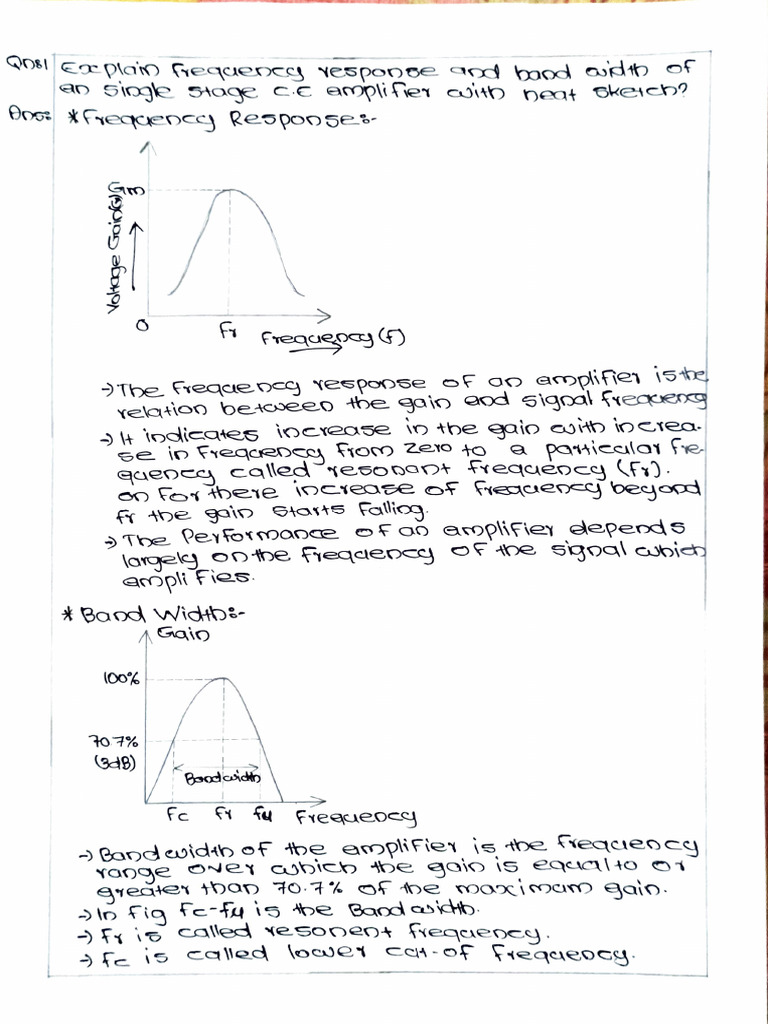 Qns:1 Explain frequency response and band width of
an single stage C.C amplifier with neat sketch?
Ans: *Frequency Response:-
Gm
Voltage Gain(G)
0
fr
Frequency(f)
→The frequency response of an amplifier is the
relation between the gain and signal frequency
→It indicates increase in the gain with increa-
se in frequency from zero to a particular fre-
quency called resonant frequency (fr).
on for there increase of frequency beyond
fr the gain starts falling.
→The Performance of an amplifier depends
largely on the frequency of the signal which
amplifies.
* Band Width:-
Gain
100%
70.7%
(3dB)
Bandwidth
fc fr fu Frequency
→Bandwidth of the amplifier is the frequency
range over which the gain is equal to or
greater than 70.7% of the maximum gain.
→In fig fc-fu is the Bandwidth.
→fr is called resonent frequency.
→fc is called lower cat-of frequency.